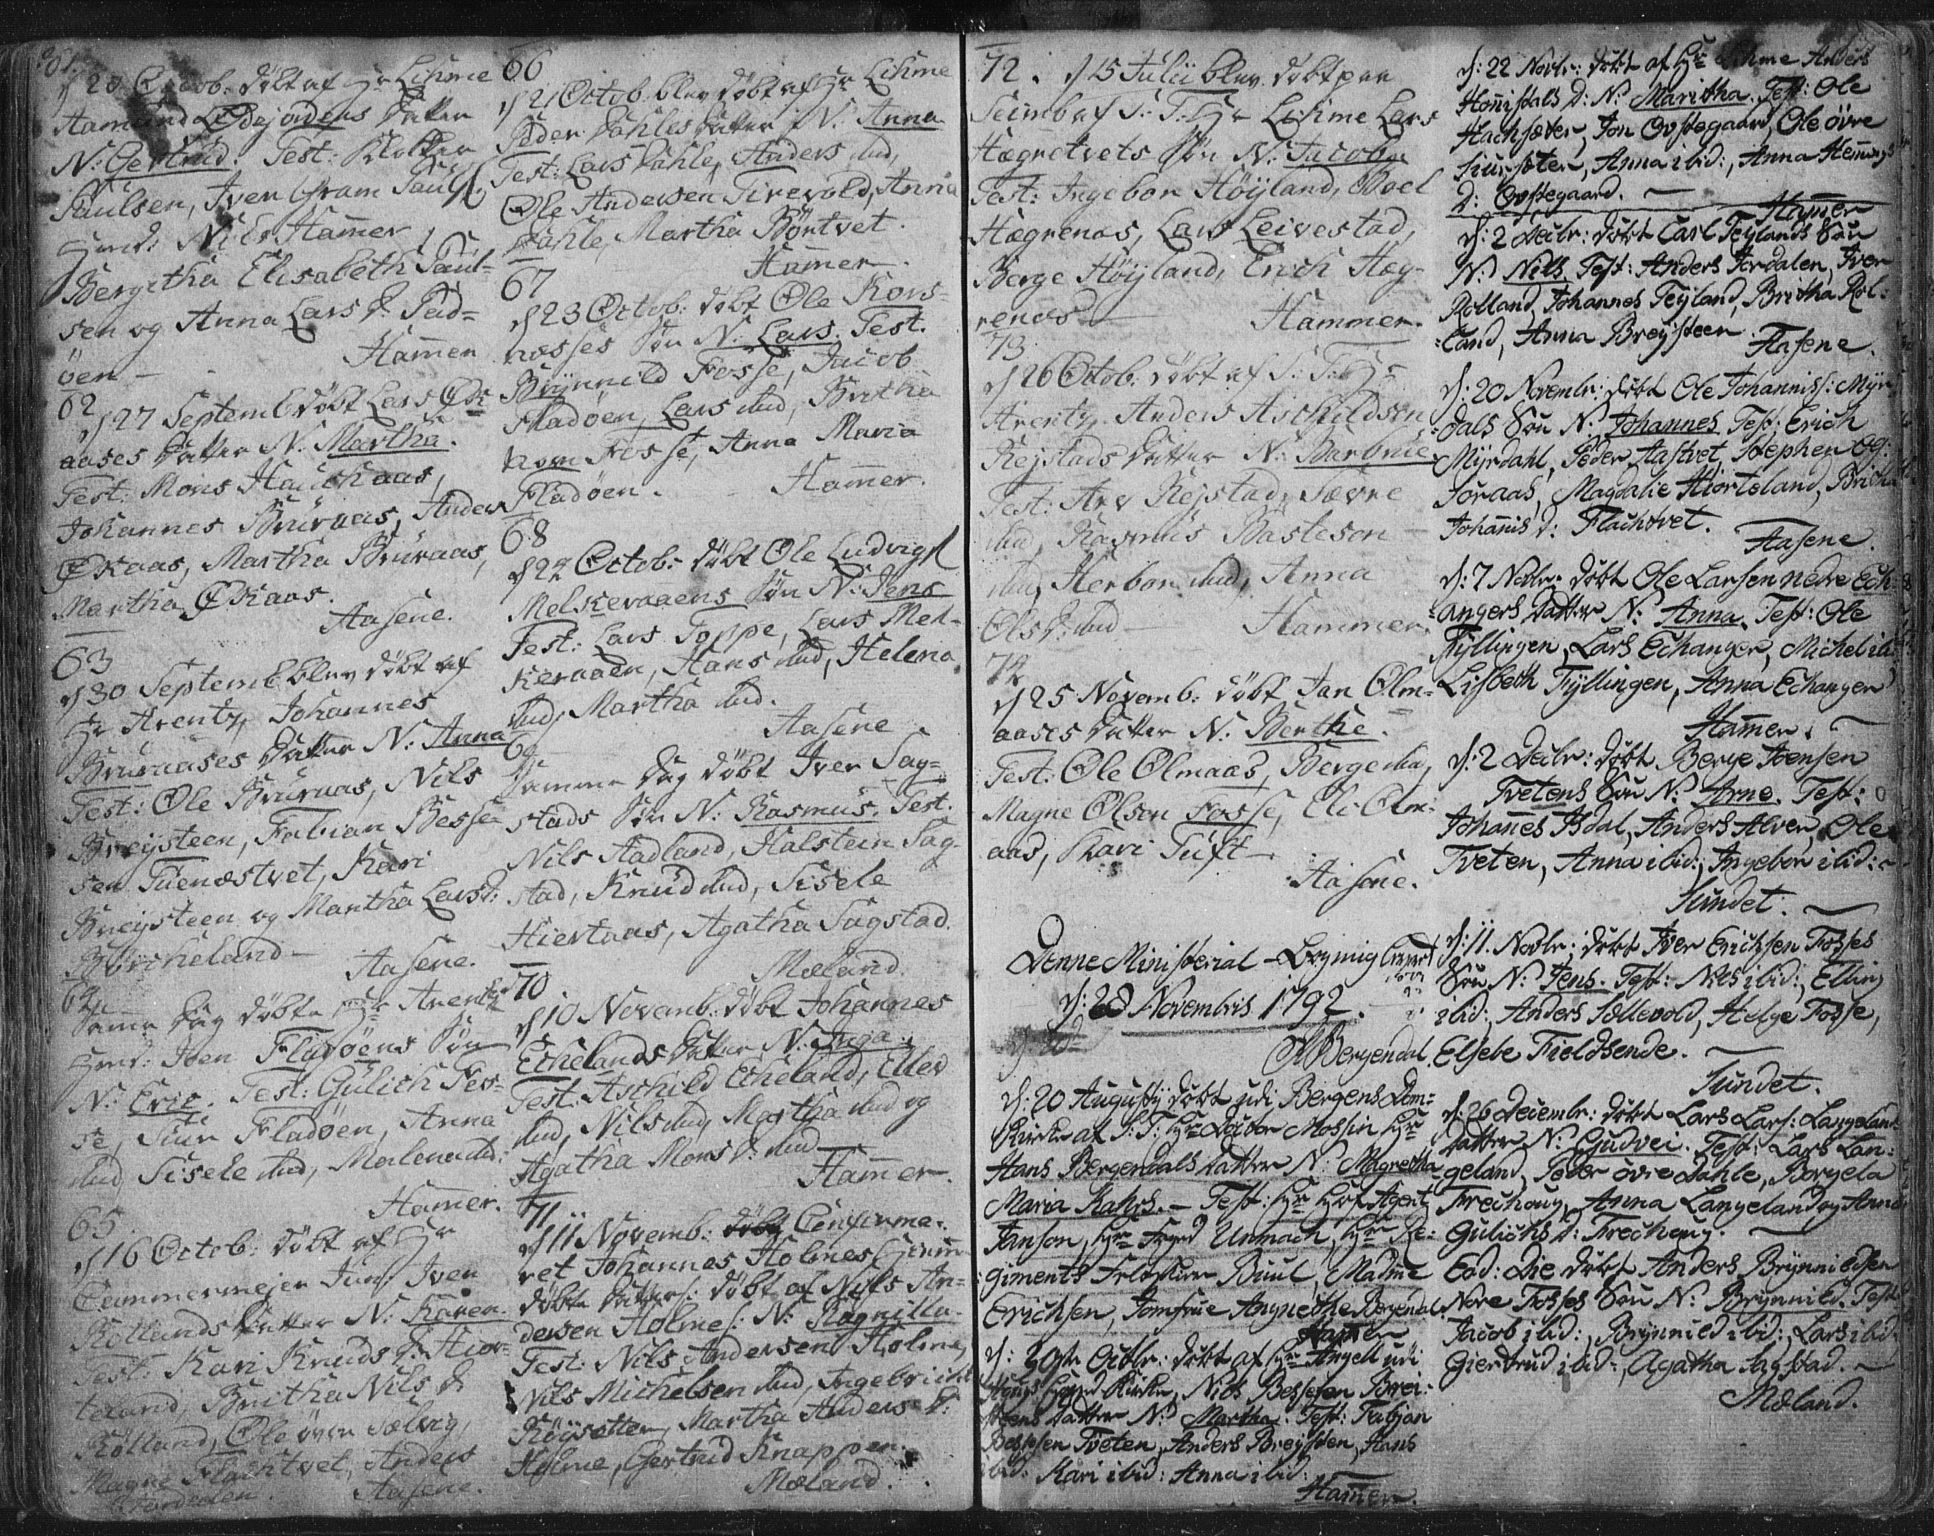 61.
d 20 Octob: døbt af Hr Lihme
Aamund Ødejordens Datter
N: Gertrud. Test: Klokker
Paulsen, Iver Gram Pauls:
Nils Hamer,
Bergitha Elisabeth Paul-
sen og Anna Lars D.
öen — Hamer
62
d 27 Septemb døbt Lars Øk-
aases Datter N: Martha.
Test: Mons Hauckaas,
Johannes Bruraas, Anders
Økaas, Martha Bruraas,
Martha Økaas.
Aasene.
63
d 30 Septemb blev døbt af
Hr Arentz, Johannes
Bruraases Datter N: Anna
Test: Ole Bruraas, Nils
Breijsteen, Fabian Besse-
sen Tuenæstvet, Kari
Breijsteen og Martha Larsd:
Bircheland —
Aasene.
64
Samme Dag døbte Hr Arentz
Joen Fladøens Søn
N: Eric. Test: Gulich Fos-
se, Siur Fladøen, Anna
ibid, Sisele ibid, Malena ibid:
Hamer.
65
d 16 Octob: døbt af Hr
Cammermejer Jun, Iver
Røllands Datter N: Karen.
Test: Kari Knuds D. Hior-
teland, Britha Nils D
Rølland, Ole övre Sælvig,
Magne Flachtvet, Anders
Aasene.
66
d 21 Octob. blev døbt af Hr Lihme
Peder Dahles Datter N: Anna
Test: Lars Dahle, Anders ibid,
Ole Andersen Tirevold, Anna
Dahle, Martha Børtvet.
Hamer.
67
d 23 Octob: døbt Ole Kors-
næsses Søn N: Lars. Test.
Brynnild Fosse, Jacob
Fladøen, Lars ibid, Britha
Fosse, Anna Maria
Fladøen. — Hamer.
68
d 24 Octob: døbt Ole Ludvigs
Melkeraaens Søn N: Jens
Test: Lars Toppe, Lars Mel-
keraaen, Hans ibid, Helena
ibid, Martha ibid.
Aasene
69
Samme Dag døbt Iver Sag-
stads Søn N: Rasmus. Test.
Nils Aadland, Halstein Sag-
stad, Knud ibid, Sisele
Hiertaas, Agatha Sagstad.
Mæland.
70.
d 10 Novemb: døbt Johannes
Echelands Datter N: Inga.
Test: Aschild Echeland, Elles
ibid, Nils ibid, Martha ibid og
Agatha Mons D: ibid
Hamer.
71
d 11 Novemb: Confirme-
ret Johannes Holmes Hjemme-
døbte Datter: døbt af Nils An-
dersen Holme: N: Ragnilla.
Test: Nils Andersen Holme,
Nils Michelsen ibid, Ingebricht
Röijsetter, Martha Anders D:
Holme, Gertrud Knappen.
Mæland.
72. d 15 Julii blev døbt paa
Seim af S: T: Hr Lihme Lars
Hægretvets Søn N: Jacob.
Test: Ingebor Höijland, Boel
Hægrenæs, Lars Leivestad,
Berge Höijland, Erich Hæg-
renæs — Hammer.
73
d 26 Octob: døbt af S: T: Hr
Arentz, Anders Aschildsen
Rejstads Datter N: Barbrue
Test: Arv Rejstad, Sævre
ibid, Rasmus Böstesen
ibid, Herbor ibid, Anna
Ols D: ibid — Hammer.
74
d 25 Novemb: døbt Jan Olm-
aases Datter N: Berthe.
Test: Ole Olmaas, Berge ibid,
Magne Olsen Fosse, Eli Olm-
aas, Kari Tuft —
Aasene.
Denne Ministerial-Bog mig leveret
d: 28 Novembris 1792.
HBergendal
d: 20 Augusty døbt udi Bergens Dom-
Kirke af S: T: Hr Doctor Mossin Hr
Hans Bergendals Datter N: Magretha
Maria Kahrs. — Test: Hr Hof Agent
Janson, Hr Unmach, Hr Re-
giments Feldskier Buul, Madme
Erichsen, Jomfrue Angnethe Bergendal
Hamer
d: 30te Octbr: døbt af Hr Angell udi
Kirke, Nils Bessesen Brei-
steens Datter N: Martha. Test: Fabian
Bessesen Tveten, Anders Breysten, Hans
ibid: Kari ibid: Anna ibid:
Hamer.
d: 22 Novbr: døbt af Hr Lihme Anders
Honnisdals D: N: Maritha. Test: Ole
Hachsæter, Jon Ovstegaard, Ole øvre
Anna ibid:, Anna Hennings
D: Ovstegaard. —
Hamer
d: 2 Decbr: døbt Carl Teylands Søn
N: Nils. Test: Anders Jordalen, Iver
Rolland, Johannes Teyland, Britha Rol-
land, Anna Breysteen. Aasene.
d: 20 Novembr: døbt Ole Johanniss: Myr-
dals Søn N: Johannes. Test: Erich
Myrdahl, Peder Aastvet, Stephen
Toraas, Magdalie Hiorteland, Britha
Johanis D: Flachtvet.
Aasene.
d: 7 Novbr: døbt Ole Larsen nedre Ech-
angers Datter N: Anna. Test: Ole
Fyllingen, Lars Echanger, Michel ibi
Lisbeth Fyllingen, Anna Echanger
Hamer.
d: 2 Decbr: døbt Berge Jensen
Tvetens Søn N: Arne. Test:
Johannes Isdal, Anders Alver, Ole
Tveten, Anna ibid:, Ingebor ibid: —
Sundet. —
d: 11. Novbr: døbt Iver Erichsen Fosses
Søn N: Jens. Test: Nils ibid:, Elling
ibid:, Anders Sællevold, Helge Fosse,
Elsebe Fieldsende.
Sundet.
d: 26 Decembr: døbt Lars Lars: Langelands
Datter N: Gudvei. Test: Lars Lan-
geland, Peder övre Dahle, Borgela
Trechoug, Anna Langeland og Anna
Gulichs D: Trechoug.
Eod: Die døbt Anders Brynnieldsen
Nore Fosses Søn N: Brynnild. Test:
Jacob ibid:, Brynnild ibid:, Lars ibid:
Giertrud ibid:, Agatha Sagstad. —
Mæland.